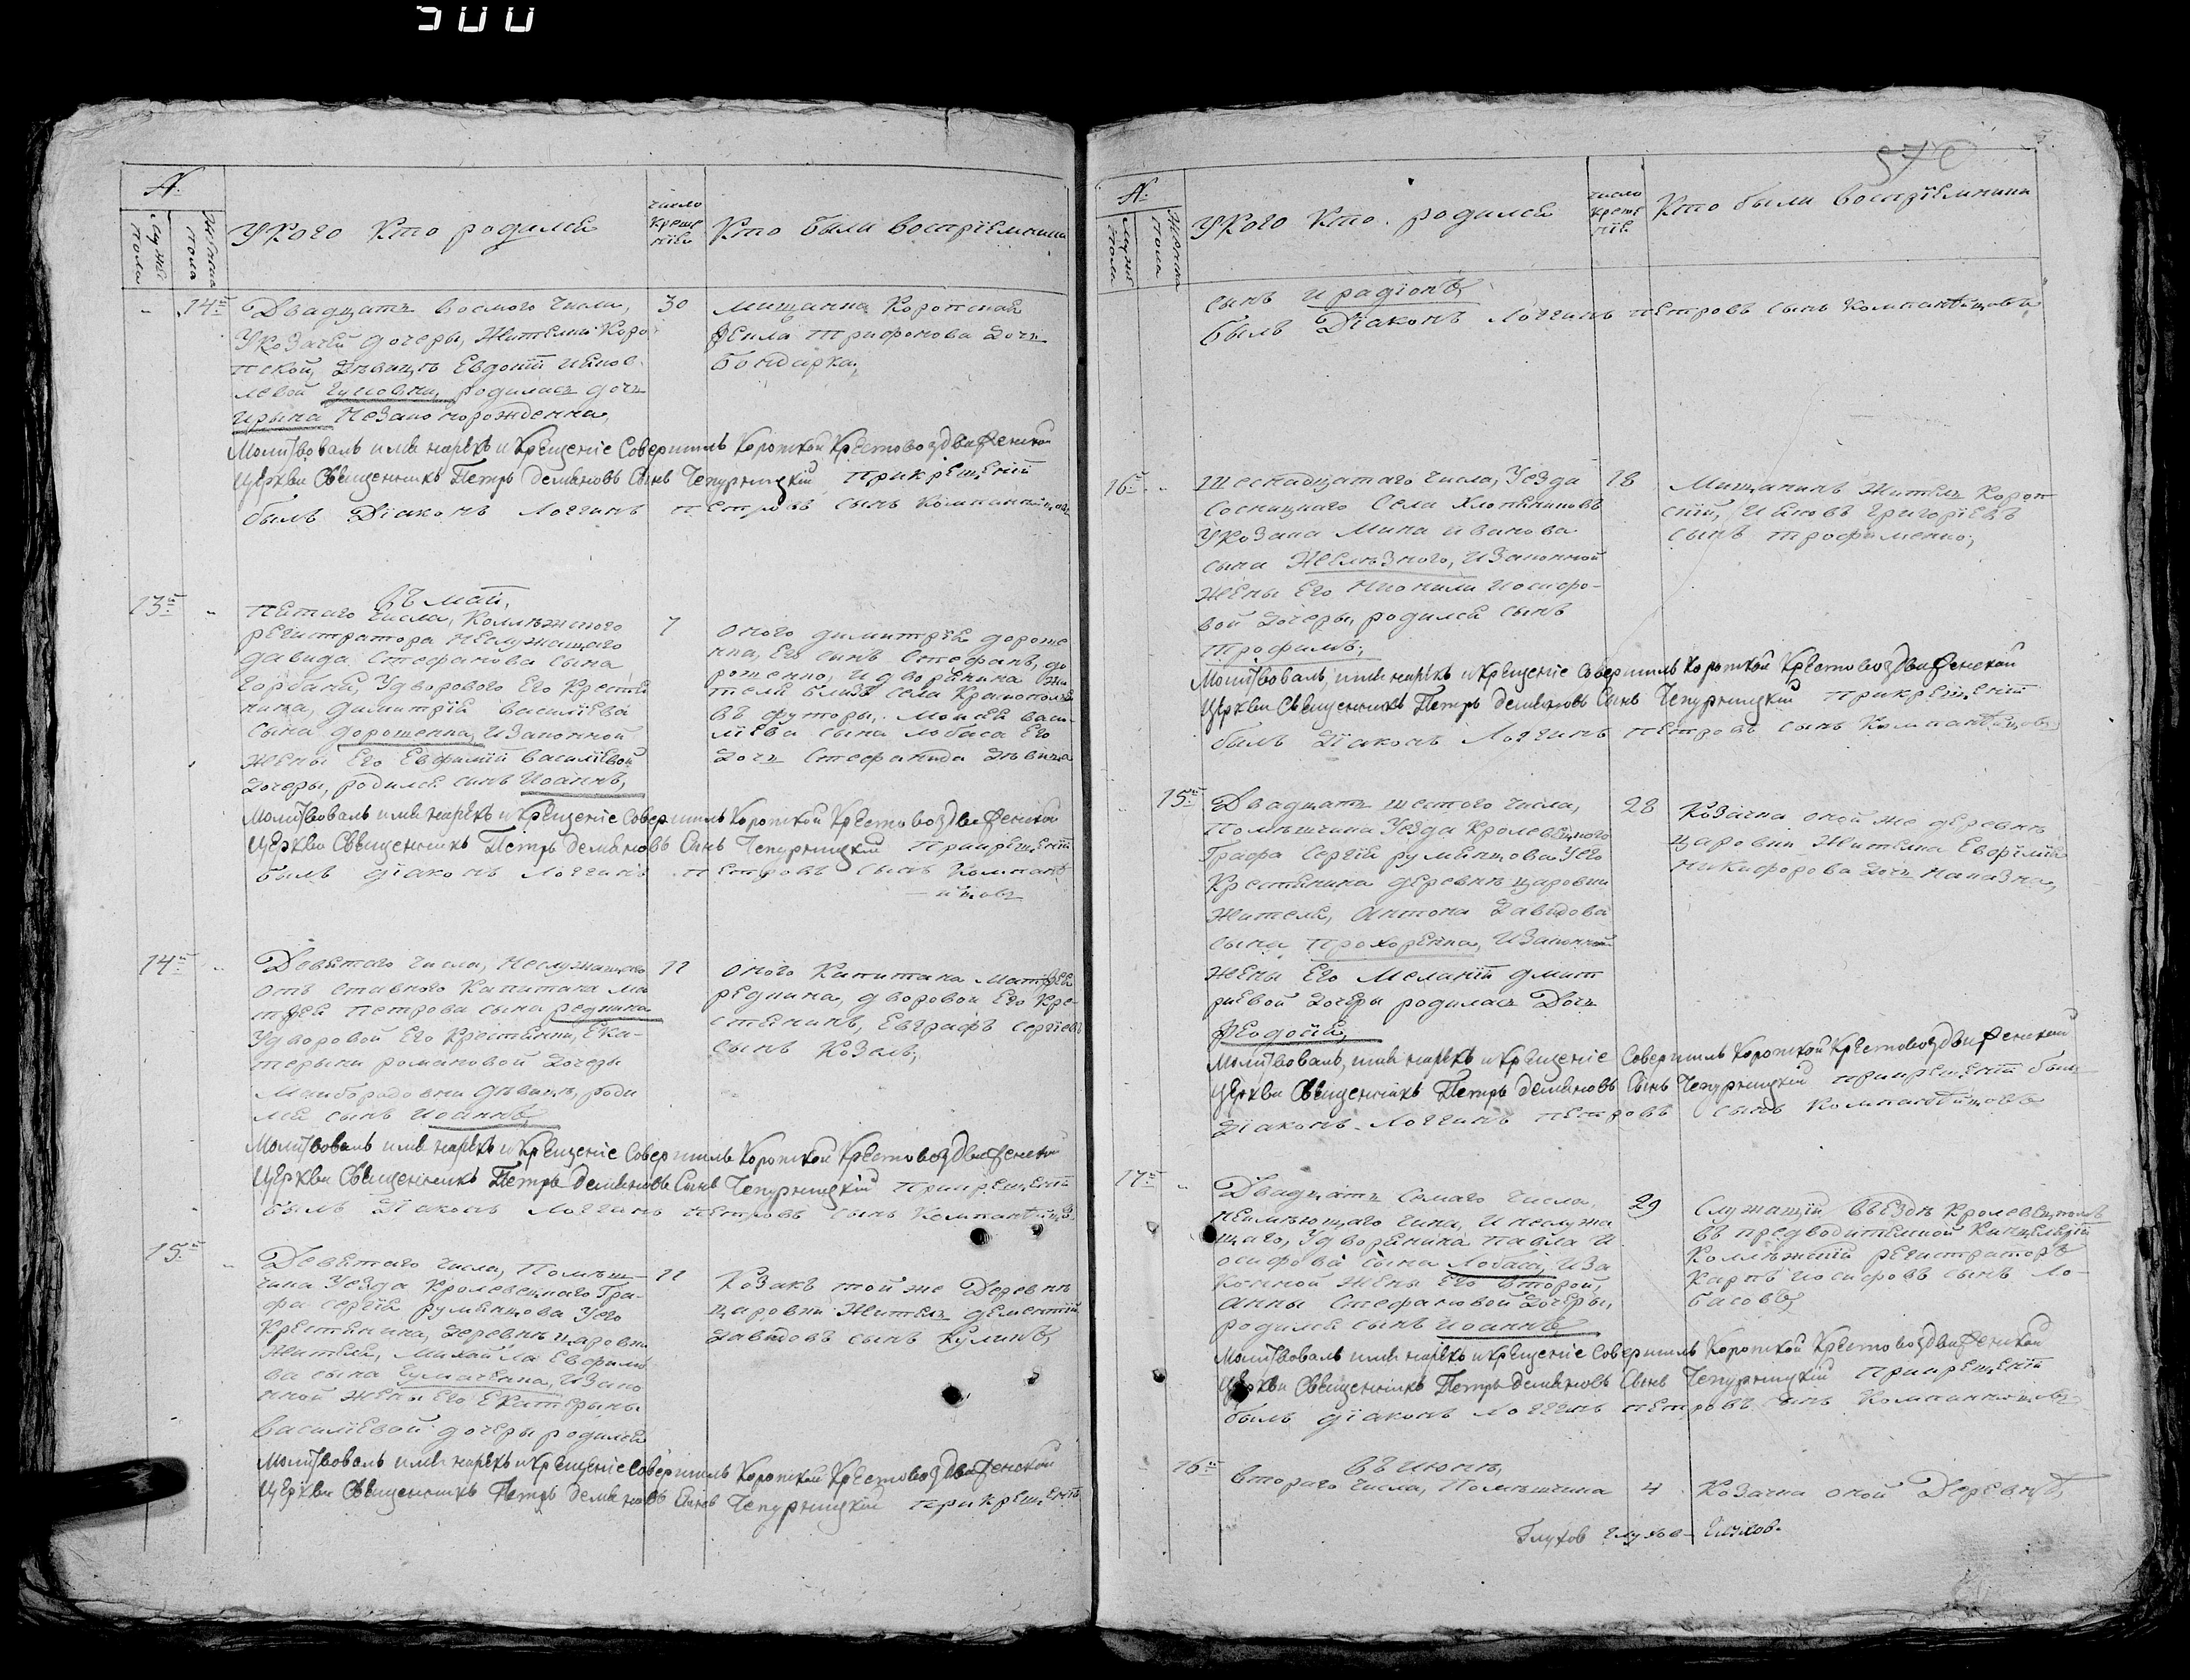 500
№
Мужс: пола
Женска пола
У кого кто родился
число креще нїя
Кто были воспрїемники
14й
Двадцать восмого числа,
У козачей дочеры, Жителки Коро
пской, Дѣвицѣ Евдокїи
левой родилась дочь
Ирына незаконорожденна,
30
Мищанка Коропская
Фекла Трифонова дочь
Бондарка,
Молитвовалъ имя нарѣкъ и крещенїе совершилъ Коропской Крестовоздвиженской
Церкви Священникъ Петръ Демяновъ Сынъ Чепурницкїй При крещенїи
былъ Дїаконъ Логгинъ Петровъ сынъ Компанѣйцовъ
Въ Маїи,
13й
Пятаго числа, Колѣжского
регистратора неслужащаго
Давида Стефанова сына
Горбаня, У дворового его крестя
нина, Димитрїя Василїева
сына Дорошенка, и законной
жены его Евфимїи Василїевой
дочеры, родился сынъ Иоаннъ,
7
Оного Димитрїя Дороше
нка, его сынъ Стефанъ, До
рошенко, и дворянина жи
теля близъ села Краснополя
въ футоры, Моисея Васи
лїева сына Лобаса его
дочь Стефанида дѣвица
Молитвовалъ имя нарѣкъ и крещенїе совершилъ Коропской Крестовоздвиженской
Церкви Священникъ Петръ Демяновъ Сынъ Чепурницкїй При крещенїи
былъ Дїаконъ Логгинъ Петровъ сынъ Компанѣ
йцовъ
14й
Девятаго числа, неслужащаго
отъ ставного Капитана Ма
тфея Петрова сына Редкина
У дворовой его крестянки, Ека-
терыны Романовой дочеры
Майбородовни дѣвицѣ, роди
лся сынъ Иоаннъ,
11
Оного Капитана Матфея
Редкина, дворовой его кре-
стянинъ, Евграфъ Сергїевъ
сынъ Козалъ,
Молитвовалъ имя нарѣкъ и крещенїе совершилъ Коропской Крестовоздвиженской
Церкви Священникъ Петръ Демяновъ Сынъ Чепурницкїй При крещенїи
былъ Дїаконъ Логгинъ Петровъ сынъ Компанѣйцов
15й
Девятаго числа, Помѣщи-
чика Уезда Кролевецкаго Гра-
фа Сергїя Румянцова У его
крестянина, деревнѣ Царовки
жителя, Михайла Евфимо
ва сына и зако
нной жены его Екатерыны
Василїевой дочеры родился
11
Козакъ той же деревнѣ
Царовки житель Дементїй
Давидовъ сынъ
Молитвовалъ имя нарѣкъ и крещенїе совершилъ Коропской Крестовоздвиженской
Церкви Священникъ Петръ Демяновъ Сынъ Чепурницкїй При крещенїи
570
№
Мужс пола
Женска пола
У кого кто родился
число креще нїя
Кто были воспрїемники
сынъ Ирадїонъ,
былъ Дїаконъ Логгинъ Петровъ сынъ Компанѣйцовъ
16й
Шеснадцатаго числа, Уезда
Сосницкаго Села Хлопяниковъ
У козака Мины Иванова
сына Желѣзного, и законной
жены его Неонили Иосифо-
вой дочеры, родился сынъ
Трофимъ,
18
Мищанинъ житель Короп
скїй, Григорїевъ
сынъ Трофименко,
Молитвовалъ, имя нарѣкъ и крещенїе совершилъ Коропской Крестовоздвиженской
Церкви Священникъ Петръ Демяновъ Сынъ Чепурницкїй При крещенїи
былъ Дїаконъ Логгинъ Петровъ сынъ Компанѣйцовъ
15й
Двадцать шестого числа,
Помѣщчика Уезда Кролевецкого
Графа Сергїя Румянцова У его
крестянина деревнѣ Царовки
жителя, Антона Давидова
сына Прохоренка, и законной
жены его Меланїи Дмит
рїевой дочеры родилась дочь
Феодосїя,
28
Козачка оной же деревнѣ
Царовки жителка Евфимїя
Никифорова дочь
Молитвовалъ, имя нарѣкъ и крещенїе совершилъ Коропской Крестовоздвиженской
Церкви Священникъ Петръ Демяновъ Сынъ Чепурницкїй При крещенїи былъ
Дїаконъ Логгинъ Петровъ сынъ Компанѣйцовъ
17й
Двадцать семаго числа,
неимѣющаго чина, и неслужа
щаго, У дворянина Павла И
осифова сына Лобаса, и за
конной жены его второй,
Анны Стефановой дочеры,
родился сынъ Иоаннъ,
29
Служащїй въ Уездѣ Кролевецкомъ
въ предводителской Канцелярїи
Колѣжскїй регистраторъ
Карпъ Иосифовъ сынъ Ло-
басовъ,
Молитвовалъ имя нарѣкъ и крещенїе совершилъ Коропской Крестовоздвиженской
Церкви Священникъ Петръ Демяновъ Сынъ Чепурницкїй При крещенїи
былъ Дїаконъ Логгинъ Петровъ сынъ Компанѣйцовъ
Въ Июнѣ,
16й
Второго числа, Помѣщчика
4
Козачка оной деревнѣ,
Глухов Глухов